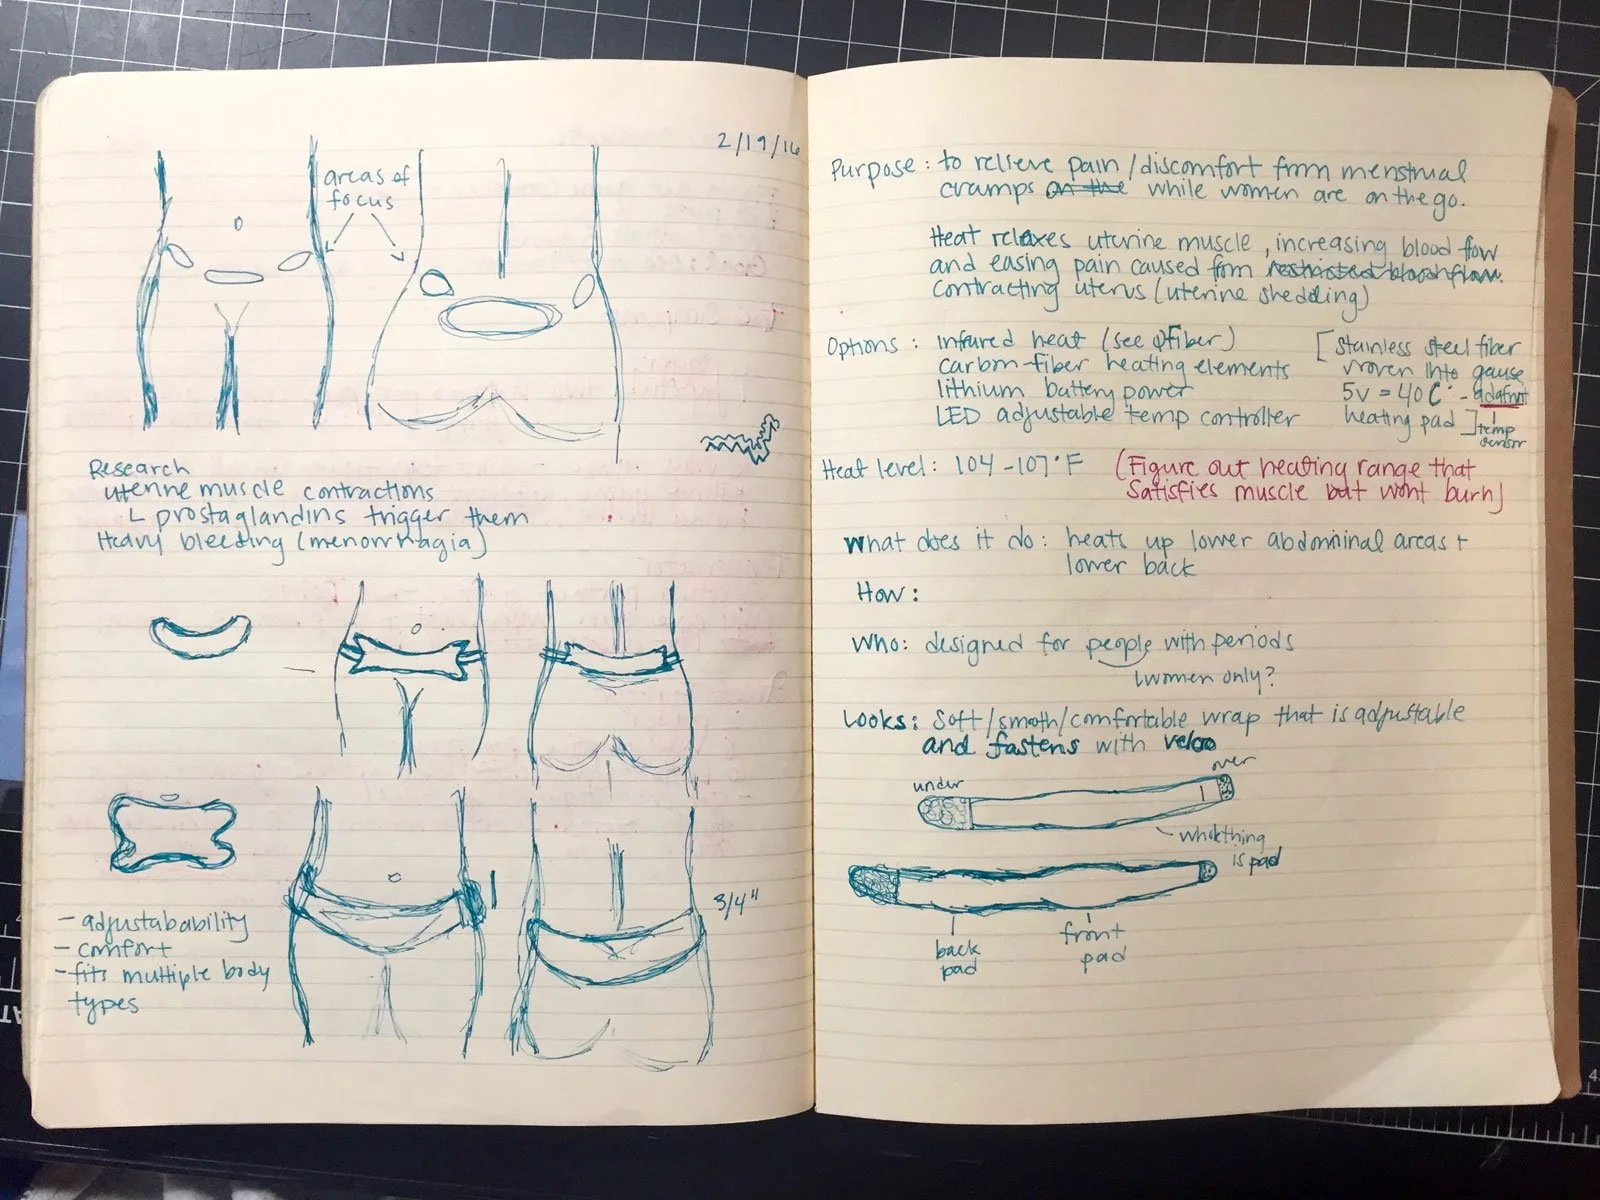 2/19/16
areas of
focus
Research
uterine muscle contractions
L prostaglandins trigger them
Heavy bleeding (menorrhagia)
- adjustabability
- comfort
- fits multiple body
types
3/4"
Purpose: to relieve pain/discomfort from menstrual
cramps on the while women are on the go.
Heat relaxes uterine muscle, increasing blood flow
and easing pain caused from restricted blood flow.
contracting uterus (uterine shedding)
Options: infrared heat (see fiber)
carbon-fiber heating elements
lithium battery power
LED adjustable temp controller
[stainless steel fiber
woven into gause
5v = 40C° - adafruit
heating pad]
temp
sensor
Heat level: 104-107°F (Figure out heating range that
satisfies muscle but wont burn)
What does it do: heats up lower abdominal areas +
lower back
How:
Who: designed for people with periods
(women only?
Looks: Soft/smooth/comfortable wrap that is adjustable
and fastens with velcro
under
over
whole thing
is pad
back
pad
front
pad